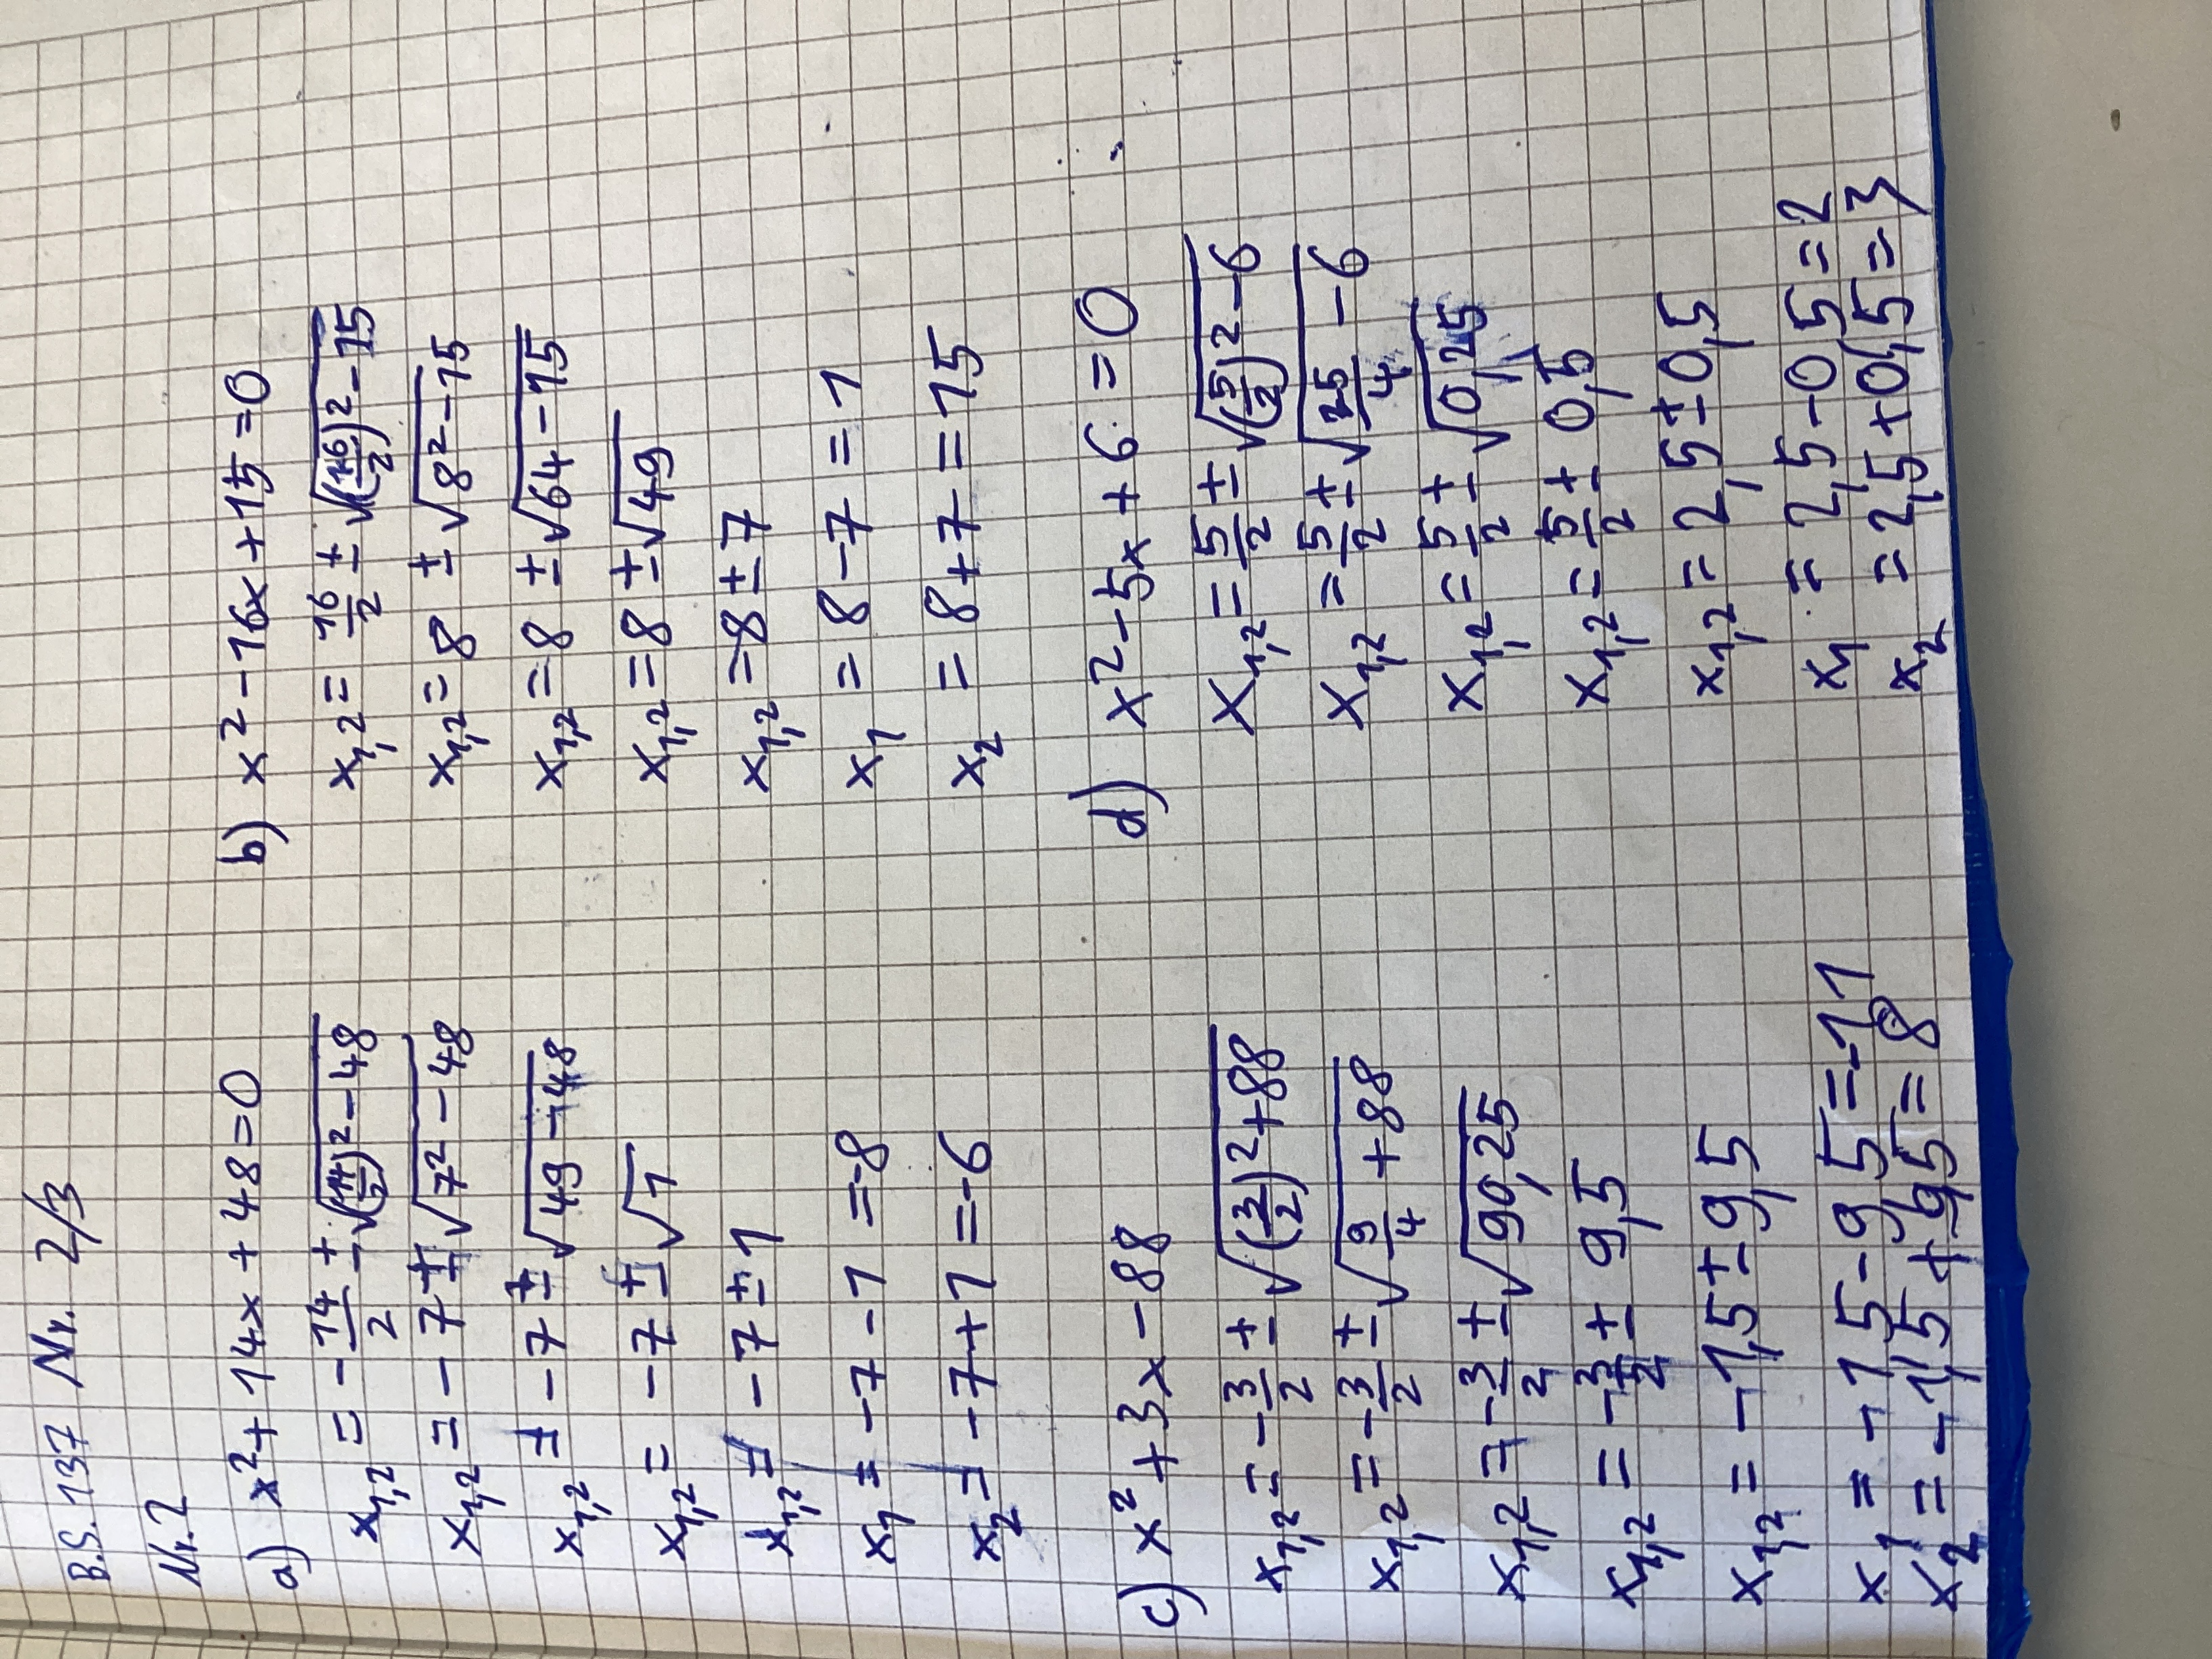 B.S. 137 Nr. 2/3
Nr. 2
a) x² + 14x + 48 = 0
x₁,₂ = -14/2 ± √((14/2)² - 48)
x₁,₂ = -7 ± √(7² - 48)
x₁,₂ = -7 ± √(49 - 48)
x₁,₂ = -7 ± √1
x₁,₂ = -7 ± 1
x₁ = -7 - 1 = -8
x₂ = -7 + 1 = -6
b) x² - 16x + 15 = 0
x₁,₂ = 16/2 ± √((16/2)² - 15)
x₁,₂ = 8 ± √(8² - 15)
x₁,₂ = 8 ± √(64 - 15)
x₁,₂ = 8 ± √49
x₁,₂ = 8 ± 7
x₁ = 8 - 7 = 1
x₂ = 8 + 7 = 15
c) x² + 3x - 88
x₁,₂ = -3/2 ± √((3/2)² + 88)
x₁,₂ = -3/2 ± √(9/4 + 88)
x₁,₂ = -3/2 ± √90,25
x₁,₂ = -3/2 ± 9,5
x₁,₂ = -1,5 ± 9,5
x₁ = -1,5 - 9,5 = -11
x₂ = -1,5 + 9,5 = 8
d) x² - 5x + 6 = 0
x₁,₂ = 5/2 ± √((5/2)² - 6)
x₁,₂ = 5/2 ± √(25/4 - 6)
x₁,₂ = 5/2 ± √0,25
x₁,₂ = 5/2 ± 0,5
x₁,₂ = 2,5 ± 0,5
x₁ = 2,5 - 0,5 = 2
x₂ = 2,5 + 0,5 = 3